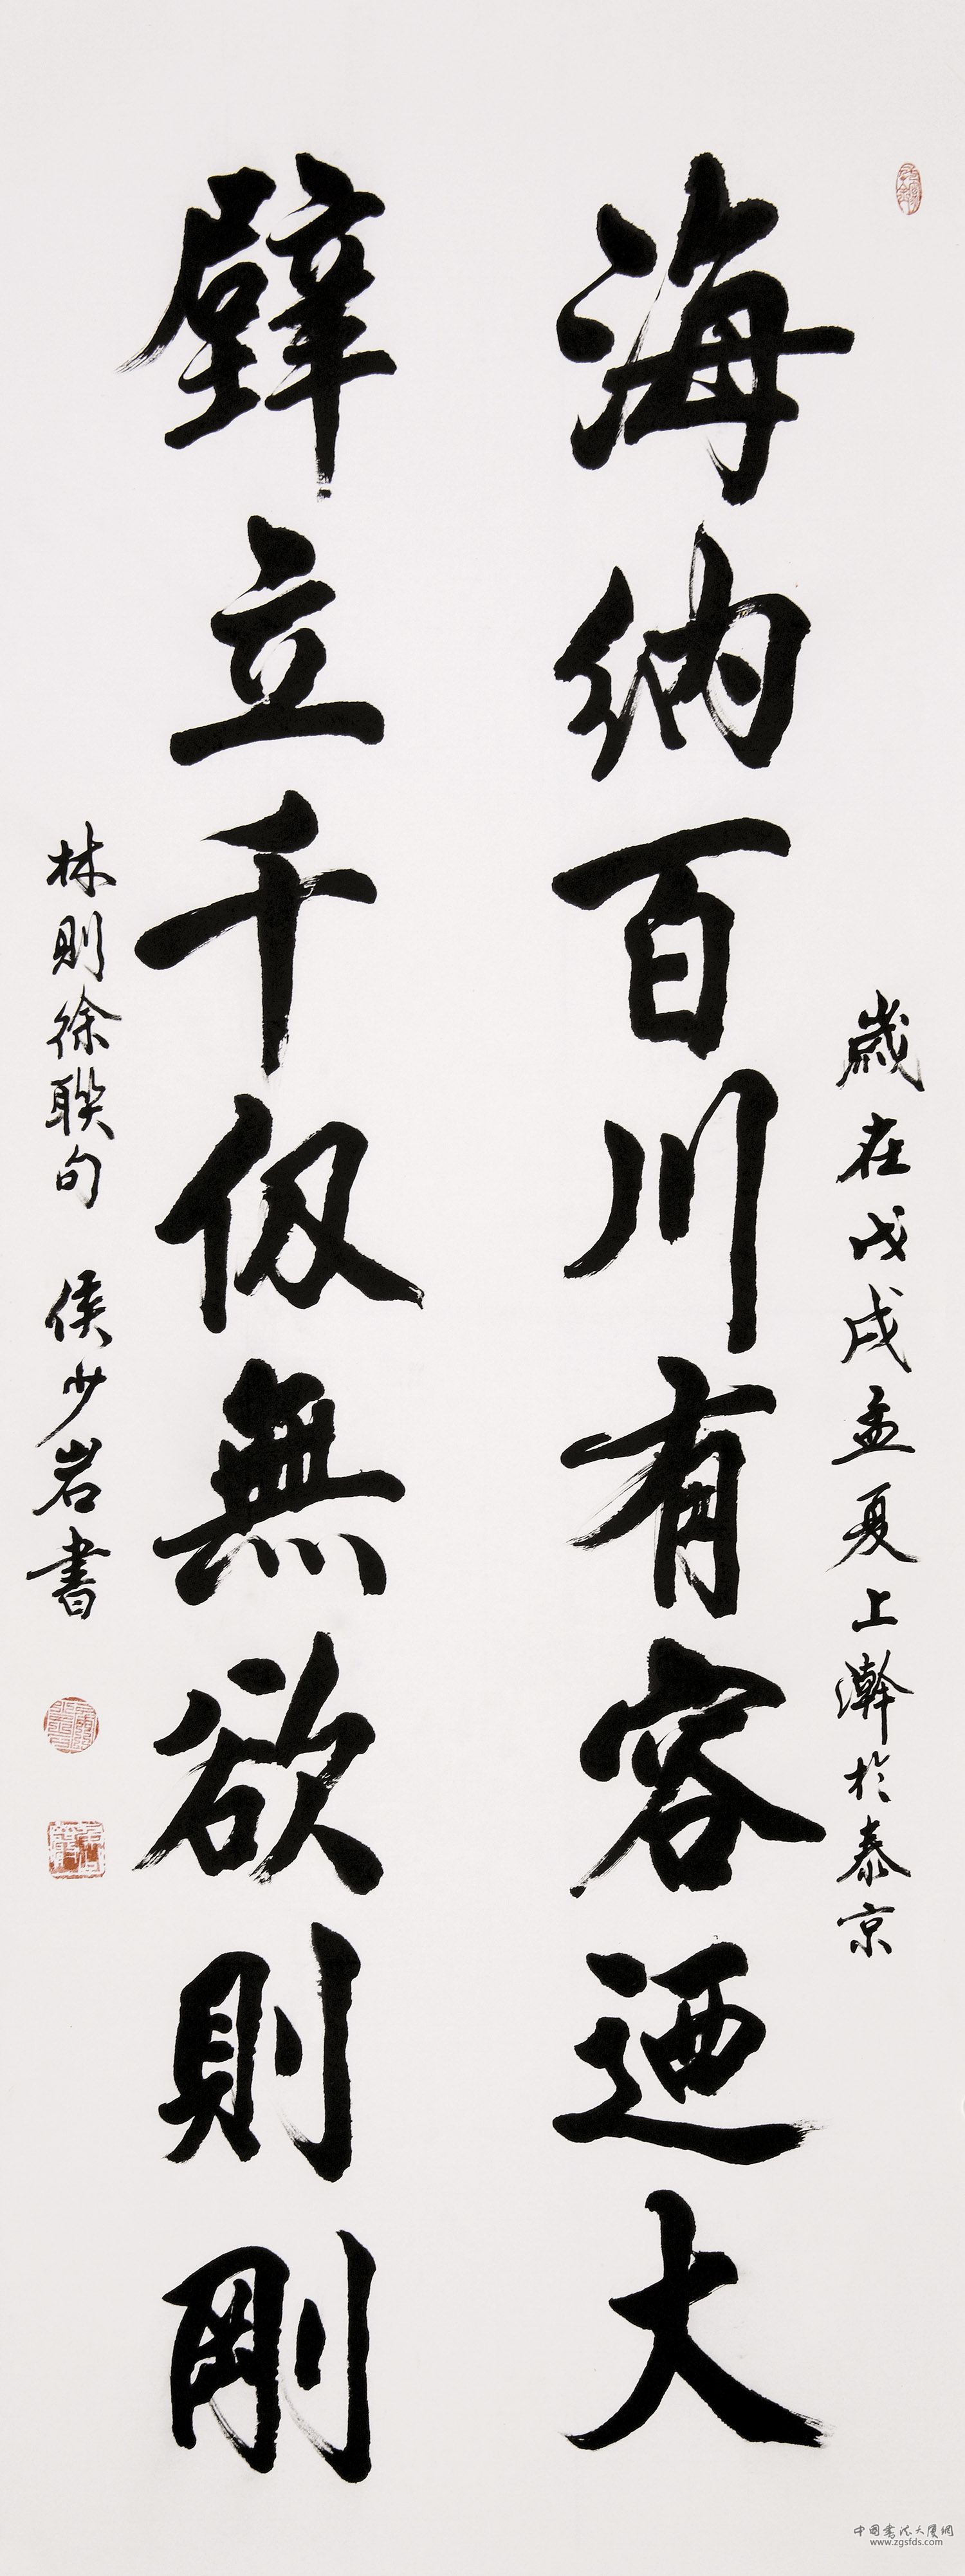 歲在戊戌孟夏上澣於泰京
海納百川有容迺大
壁立千仞無欲則剛
林則徐聯句 侯少岩書
中國書法大厦網
www.zgsfds.com